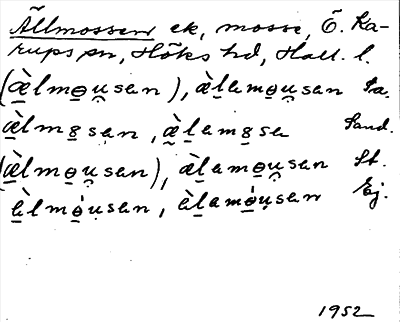 Ällmossen ek, mosse, Ö. Ka-
rups sn, Höks hd, Hall. l.
(æ̀lmo̲u̯san), æ̀l̲amo̲u̯san Sa.
æ̀lmo̲san, æ̀l̲amo̲sa Sand.
(æ̀lmo̲u̯san), æ̀l̲amo̲u̯san St.
æ̀lmo̲u̯san, æ̀l̲amo̲u̯san Ej.
1952